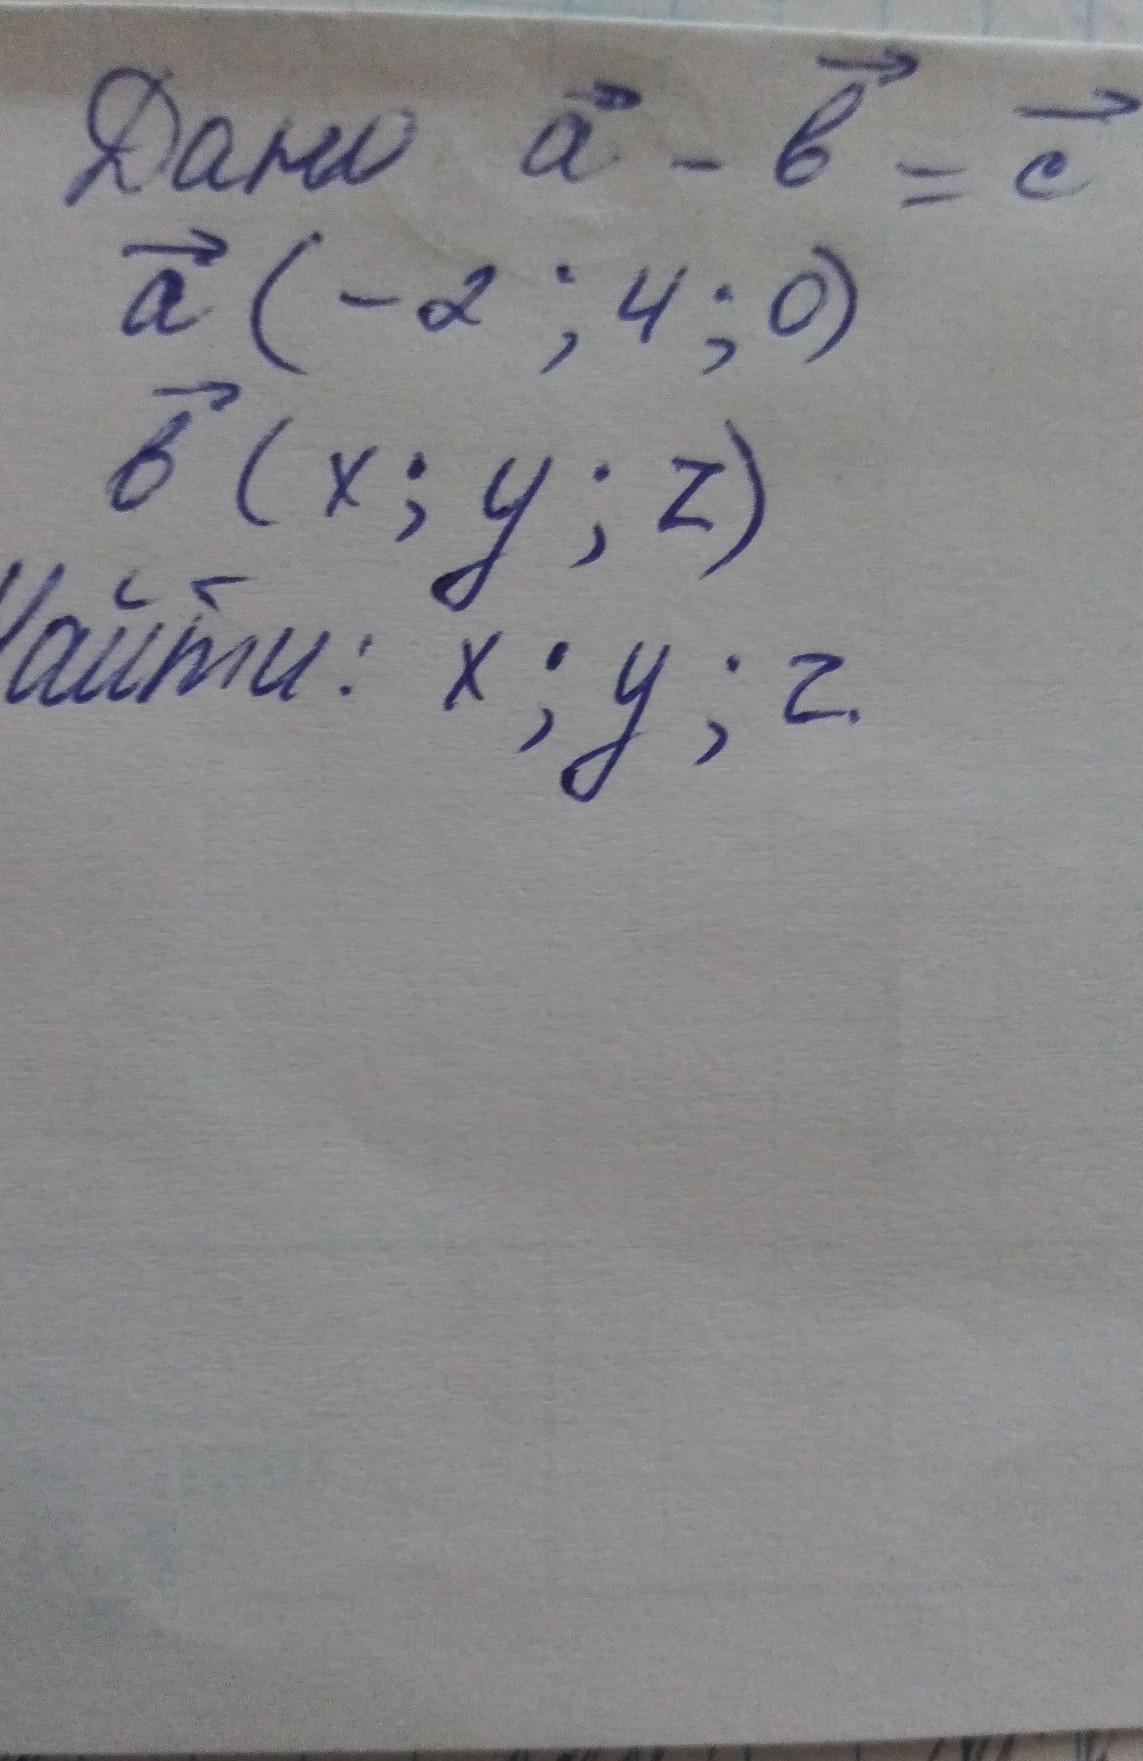 Дано a⃗ - в⃗ = c⃗
a⃗ (-2; 4; 0)
в⃗ (x; y; z)
Найти: x; y; z.